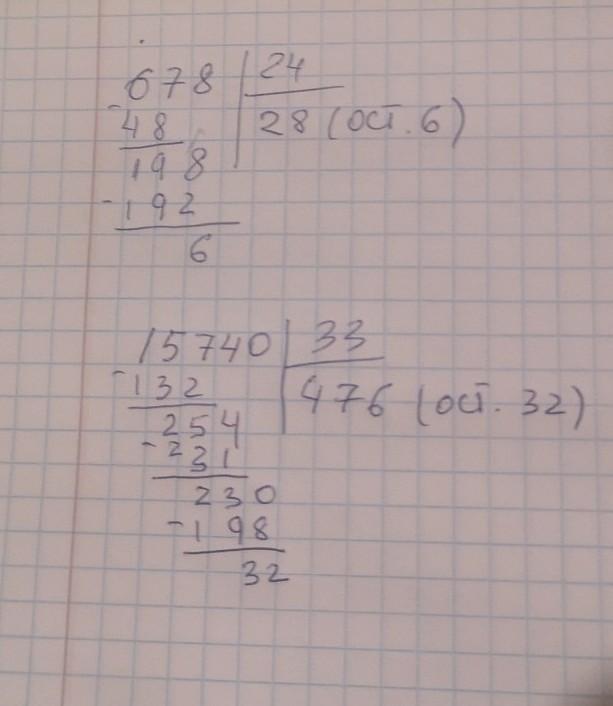 678 24
- 48 28 (ост. 6)
198
- 192
6
15740 33
- 132 476 (ост. 32)
254
- 231
230
- 198
32